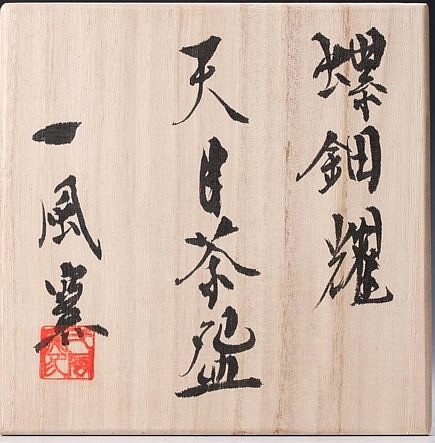 螺鈿耀
天目茶盌
一風窯